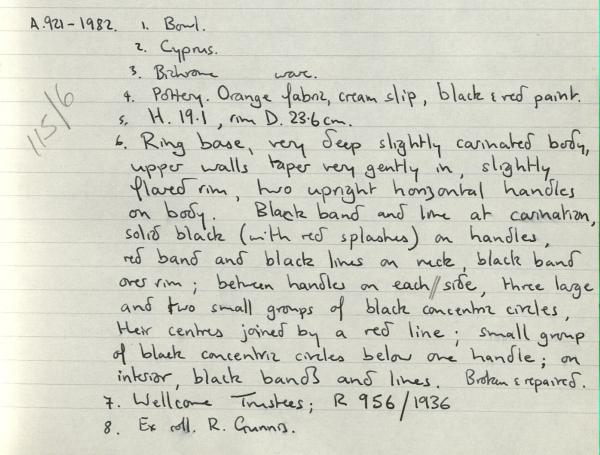 A.921-1982. 1. Bowl.
2. Cyprus.
3. Bichrome ware.
4. Pottery. Orange fabric, cream slip, black & red paint.
5. H. 19.1, rim D. 23.6 cm.
115/6
6. Ring base, very deep slightly carinated body,
upper walls taper very gently in, slightly
flared rim, two upright horizontal handles
on body. Black band and line at carination,
solid black (with red splashes) on handles,
red band and black lines on neck, black band
over rim; between handles on each//side, three large
and two small groups of black concentric circles,
their centres joined by a red line; small group
of black concentric circles below one handle; on
interior, black bands and lines. Broken & repaired.
7. Wellcome Trustees; R 956/1936
8. Ex coll. R. Gunnis.